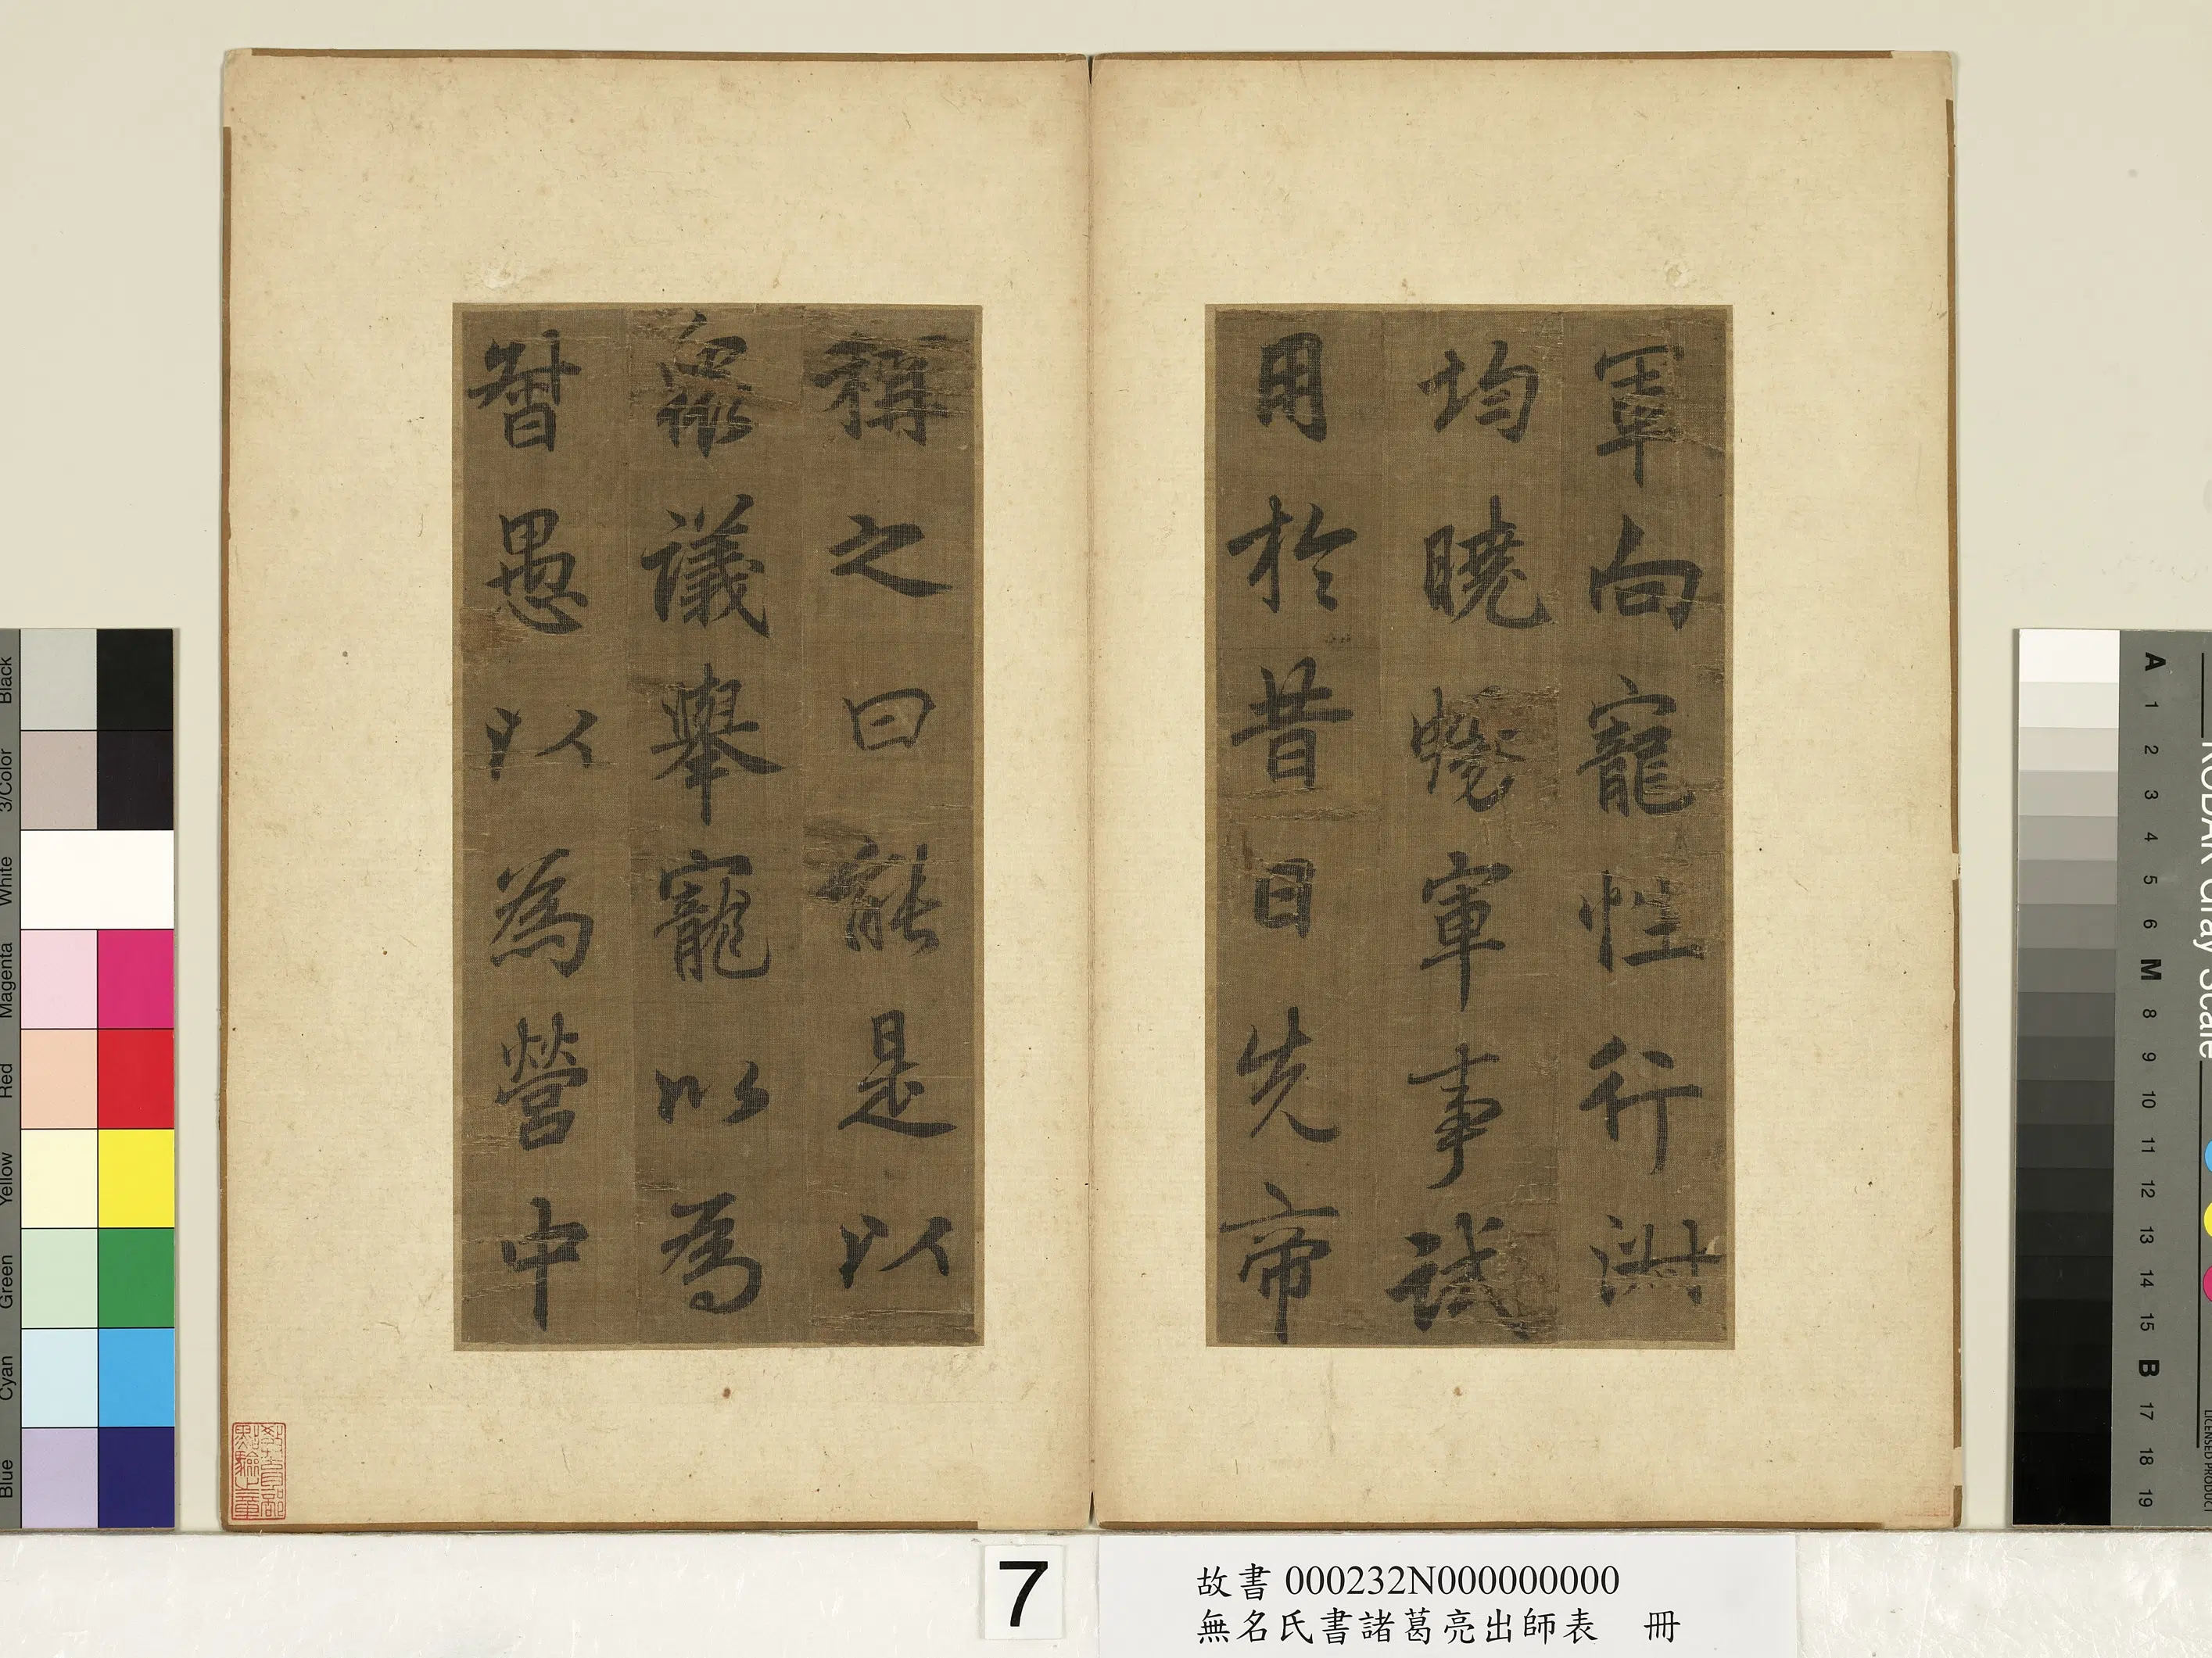 軍向寵性行淑
均曉暢軍事試
用於昔日先帝
稱之曰能是以
衆議舉寵以為
督愚以為營中
教育部
點驗之章
7
故書 000232N000000000
無名氏書諸葛亮出師表 冊
Black
3/Color
White
Magenta
Red
Yellow
Green
Cyan
Blue
KODAK Gray Scale
A 1 2 3 4 5 6 M 8 9 10 11 12 13 14 15 B 17 18 19
LICENSED PRODUCT